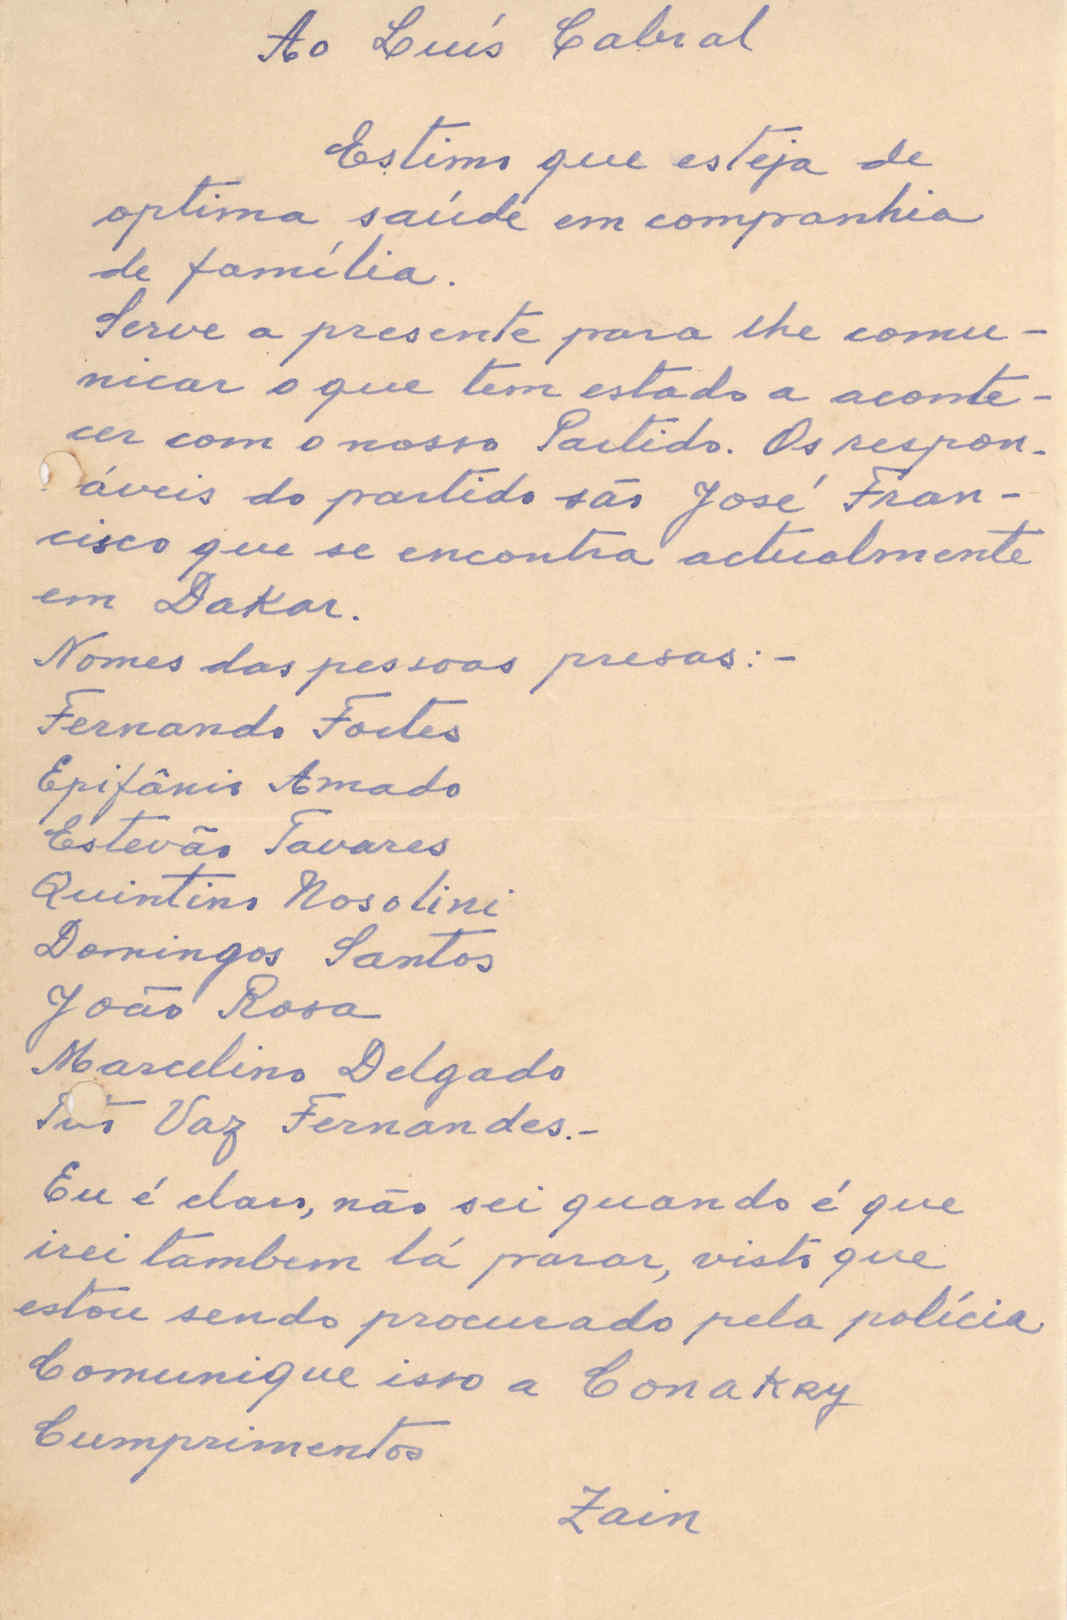 Ao Luís Cabral
Estimo que esteja de
optima saúde em companhia
de família.
Serve a presente para lhe comu-
nicar o que tem estado a aconte-
cer com o nosso Partido. Os respon-
áveis do partido são José Fran-
cisco que se encontra actualmente
em Dakar.
Nomes das pessoas presas:-
Fernando Fortes
Epifânio Amado
Estevão Tavares
Quintino Nosolini
Domingos Santos
João Rosa
Marcelino Delgado
Vaz Fernandes.-
Eu é claro, não sei quando é que
irei tambem lá parar, visto que
estou sendo procurado pela polícia
Comunique isso a Conakry
Cumprimentos
Zain